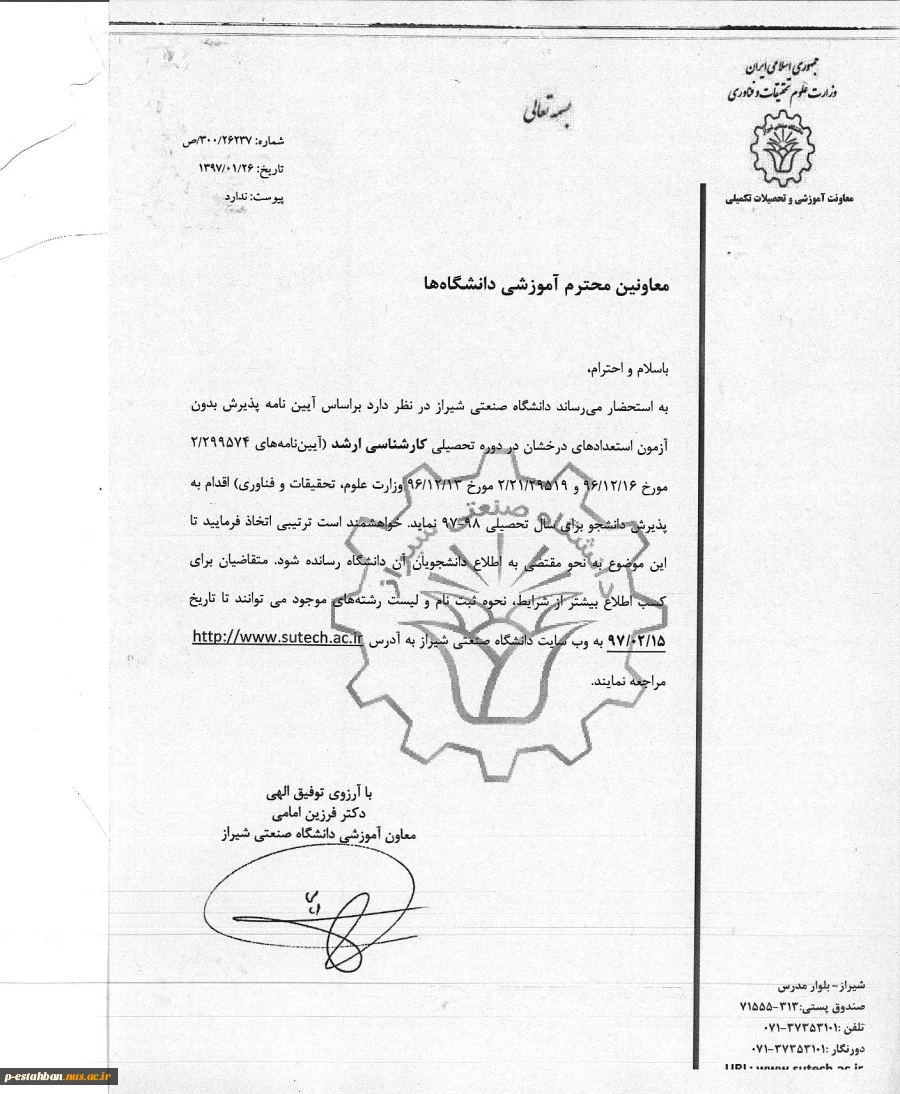 جمهوری اسلامی ایران
وزارت علوم تحقیقات و فناوری
دانشگاه صنعتی شیراز
معاونت آموزشی و تحصیلات تکمیلی
بسمه تعالی
شماره: ۳۰۰/۲۶۲۳۷/ص
تاریخ: ۱۳۹۷/۰۱/۲۶
پیوست: ندارد
معاونین محترم آموزشی دانشگاه‌ها
باسلام و احترام،
به استحضار می‌رساند دانشگاه صنعتی شیراز در نظر دارد براساس آیین نامه پذیرش بدون
آزمون استعدادهای درخشان در دوره تحصیلی کارشناسی ارشد (آیین‌نامه‌های ۲/۲۹۹۵۷۴
مورخ ۹۶/۱۲/۱۶ و ۲/۲۱/۲۹۵۱۹ مورخ ۹۶/۱۲/۱۳ وزارت علوم، تحقیقات و فناوری) اقدام به
پذیرش دانشجو برای سال تحصیلی ۹۸-۹۷ نماید. خواهشمند است ترتیبی اتخاذ فرمایید تا
این موضوع به نحو مقتضی به اطلاع دانشجویان آن دانشگاه رسانده شود. متقاضیان برای
کسب اطلاع بیشتر از شرایط، نحوه ثبت نام و لیست رشته‌های موجود می توانند تا تاریخ
۹۷/۰۲/۱۵ به وب سایت دانشگاه صنعتی شیراز به آدرس http://www.sutech.ac.ir
مراجعه نمایند.
دانشگاه صنعتی شیراز
با آرزوی توفیق الهی
دکتر فرزین امامی
معاون آموزشی دانشگاه صنعتی شیراز
شیراز- بلوار مدرس
صندوق پستی:۳۱۳-۷۱۵۵۵
تلفن :۳۷۳۵۳۱۰۱-۰۷۱
دورنگار :۳۷۳۵۳۱۰۱-۰۷۱
URL: www.sutech.ac.ir
p-estahban.nus.ac.ir